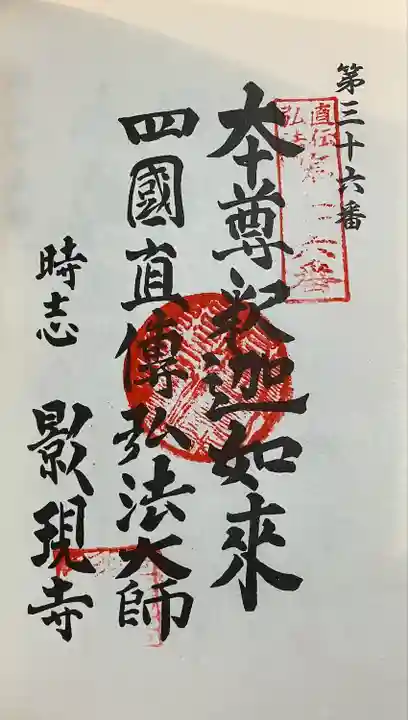 第三十六番
直伝
弘法
第三十六番
本尊釈迦如來
四國直傳弘法大師
時志 影現寺